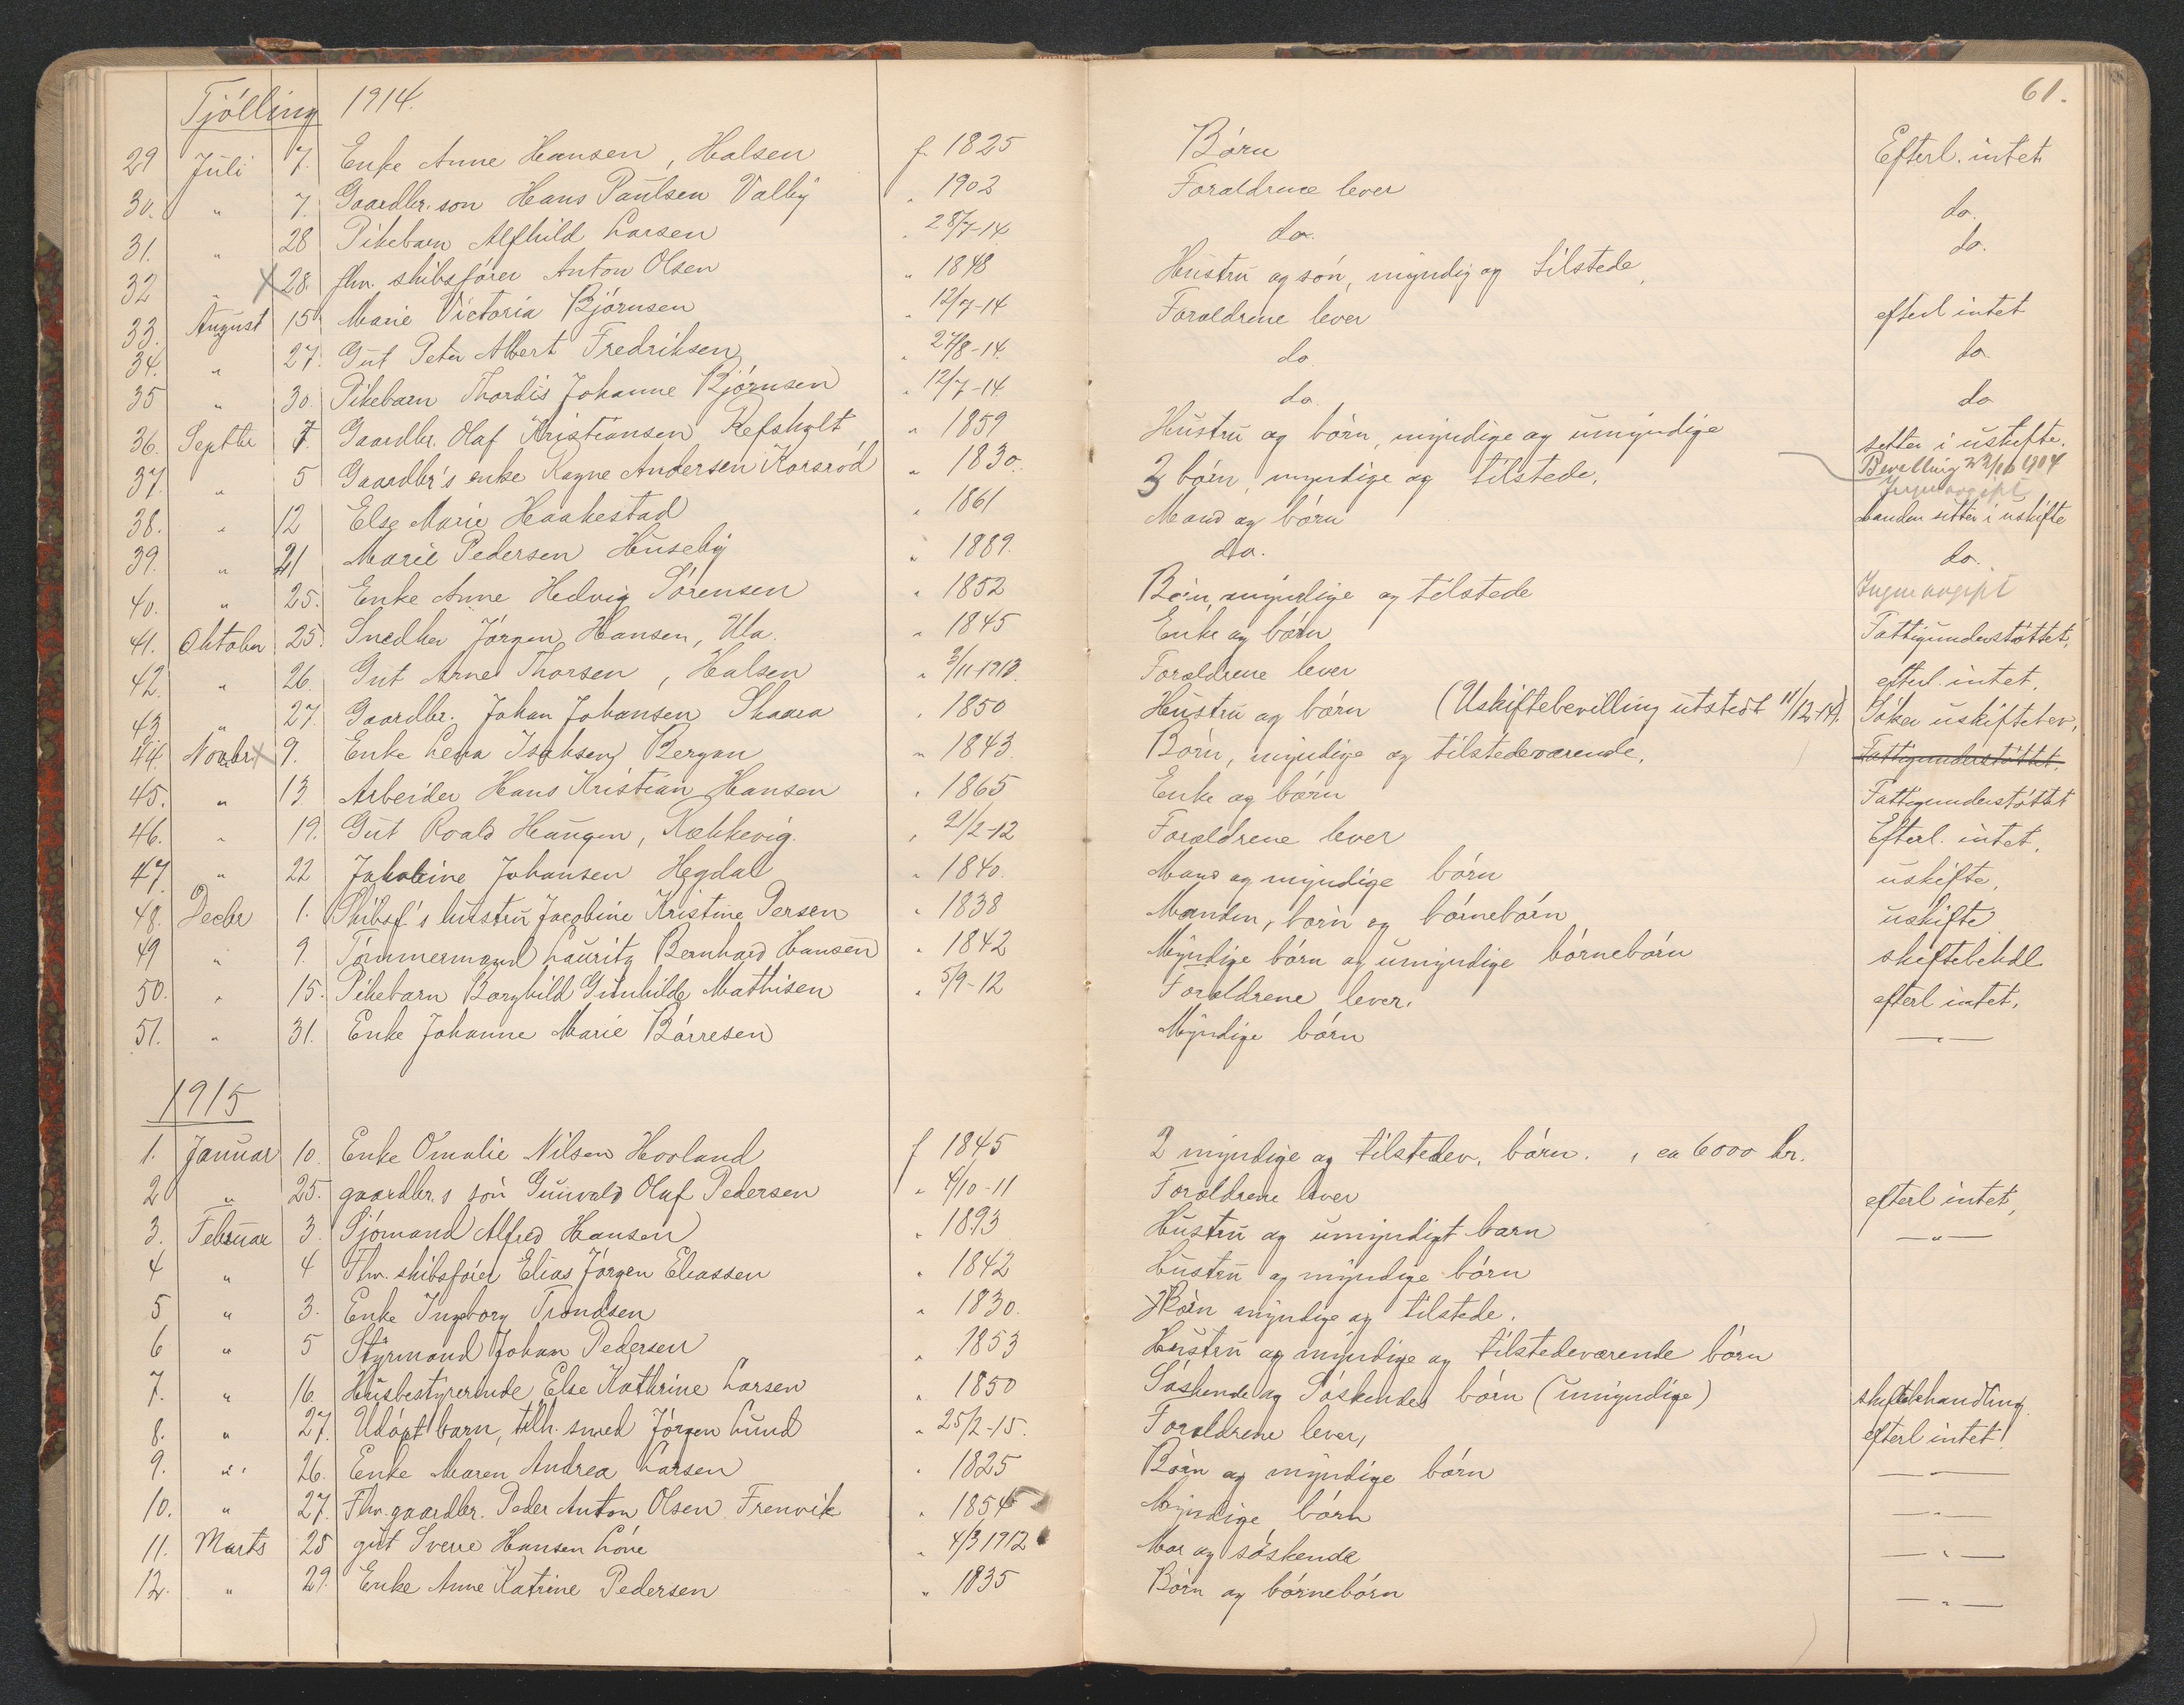 Tjölling 1914. 61.
29 Juli 7. Enke Anne Hansen, Halsen f. 1825 Börn Efterl. intet
30. " 7. Gaardbr. son Hans Paulsen Valby " 1902 Forældrene lever do.
31. " 28 Pikebarn Alfhild Larsen " 28/7-14 do. do.
32 " X 28. fhv. skibsförer Anton Olsen " 1848 Hustru og sön, myndig og tilstede,
33. August 15 Marie Victoria Björnsen " 12/7-14 Forældrene lever efterl intet
34. " 27. Gut Peter Albert Fredriksen " 27/8-14. do do.
35 " 30. Pikebarn Thordis Johanne Björnsen " 12/7-14 do. do
36. Septbr 7. Gaardbr. Olaf Kristiansen Refsholt " 1859 Hustru og börn, myndige og umyndige sitter i uskifte.
Bevilling
37. " 5 Gaardbr's enke Ragne Andersen Korsröd " 1830. 3 börn, myndige og tilstede, Ingen avgift
38. " 12 Else Marie Haakestad " 1861 Mand og börn Manden sitter i uskifte
39. " 21 Marie Pedersen Huseby " 1889. do. do.
40. " 25. Enke Anne Hedvig Sörensen " 1852 Börn, myndige og tilstede Ingen avgift
41. Oktober 25 Snedker Jörgen Hansen, Ula. " 1845 Enke og börn Fattigunderstöttet,
42. " 26. Gut Arne Thorsen, Halsen " 3/11-1913. Forældrene lever efterl. intet,
43 " 27. Gaardbr. Johan Johansen Skaara " 1850 Hustru og börn (Uskiftebevilling utstedt 11/12-14). Söker uskiftebev,
44. Novbr X 9. Enke Lena Isaksen Bergan " 1843 Börn, myndige og tilstedeværende, Fattigunderstöttet.
45. " 13 Arbeider Hans Kristian Hansen " 1865 Enke og börn Fattigunderstöttet
46. " 19. Gut Roald Haugen, Kækkevig. " 21/2-12 Forældrene lever Efterl. intet,
47. " 22 Jakobine Johansen Hegdal " 1840. Mand og myndige börn uskifte,
48. Decbr 1. Skibsf's hustru Jacobine Kristine Persen " 1838 Manden, börn og börnebörn uskifte
49 " 9. Tömmermand Lauritz Bernhard Hansen " 1842 Myndige börn og umyndige börnebörn skiftebehdl.
50. " 15. Pikebarn Borghild Gunhilde Mathisen " 5/9-12 Forældrene lever. efterl intet.
51. " 31. Enke Johanne Marie Börresen Myndige börn — " —
1915
1. Januar 10. Enke Omalie Nilsen Hovland f 1845 2 myndige og tilstedev. börn. , ca 6000 kr.
2 " 25. gaardbr.s sön Gunvald Oluf Pedersen " 4/10-11 Forældrene lever efterl intet,
3. Februar 3. Sjömand Alfred Hansen " 1893 Hustru og umyndigt barn — " —
4 " 4 Fhv. skibsförer Elias Jörgen Eliassen " 1842 Hustru og myndige börn
5 " 3. Enke Ingeborg Trondsen " 1830. Börn myndige og tilstede.
6 " 5 Styrmand Johan Pedersen " 1853 Hustru og myndige og tilstedeværende börn
7. " 16. Husbestyrerinde Else Kathrine Larsen " 1850 Söskende og Söskendes börn (umyndige) skiftebehandling
8. " 27. Udöpt barn, tilh. smed Jörgen Lund " 25/2-15. Forældrene lever, efterl intet!
9. " 26. Enke Maren Andrea Larsen " 1825 Börn og myndige börn — " —
10. " 27. Fhv. gaardbr. Peder Anton Olsen Frenvik " 1854 Myndige börn — " —
11. Marts 25 gut Sverre Hansen Löve " 4/3 1912 Mor og söskende — " —
12. " 29. Enke Anne Katrine Pedersen " 1835 Börn og börnebörn — " —